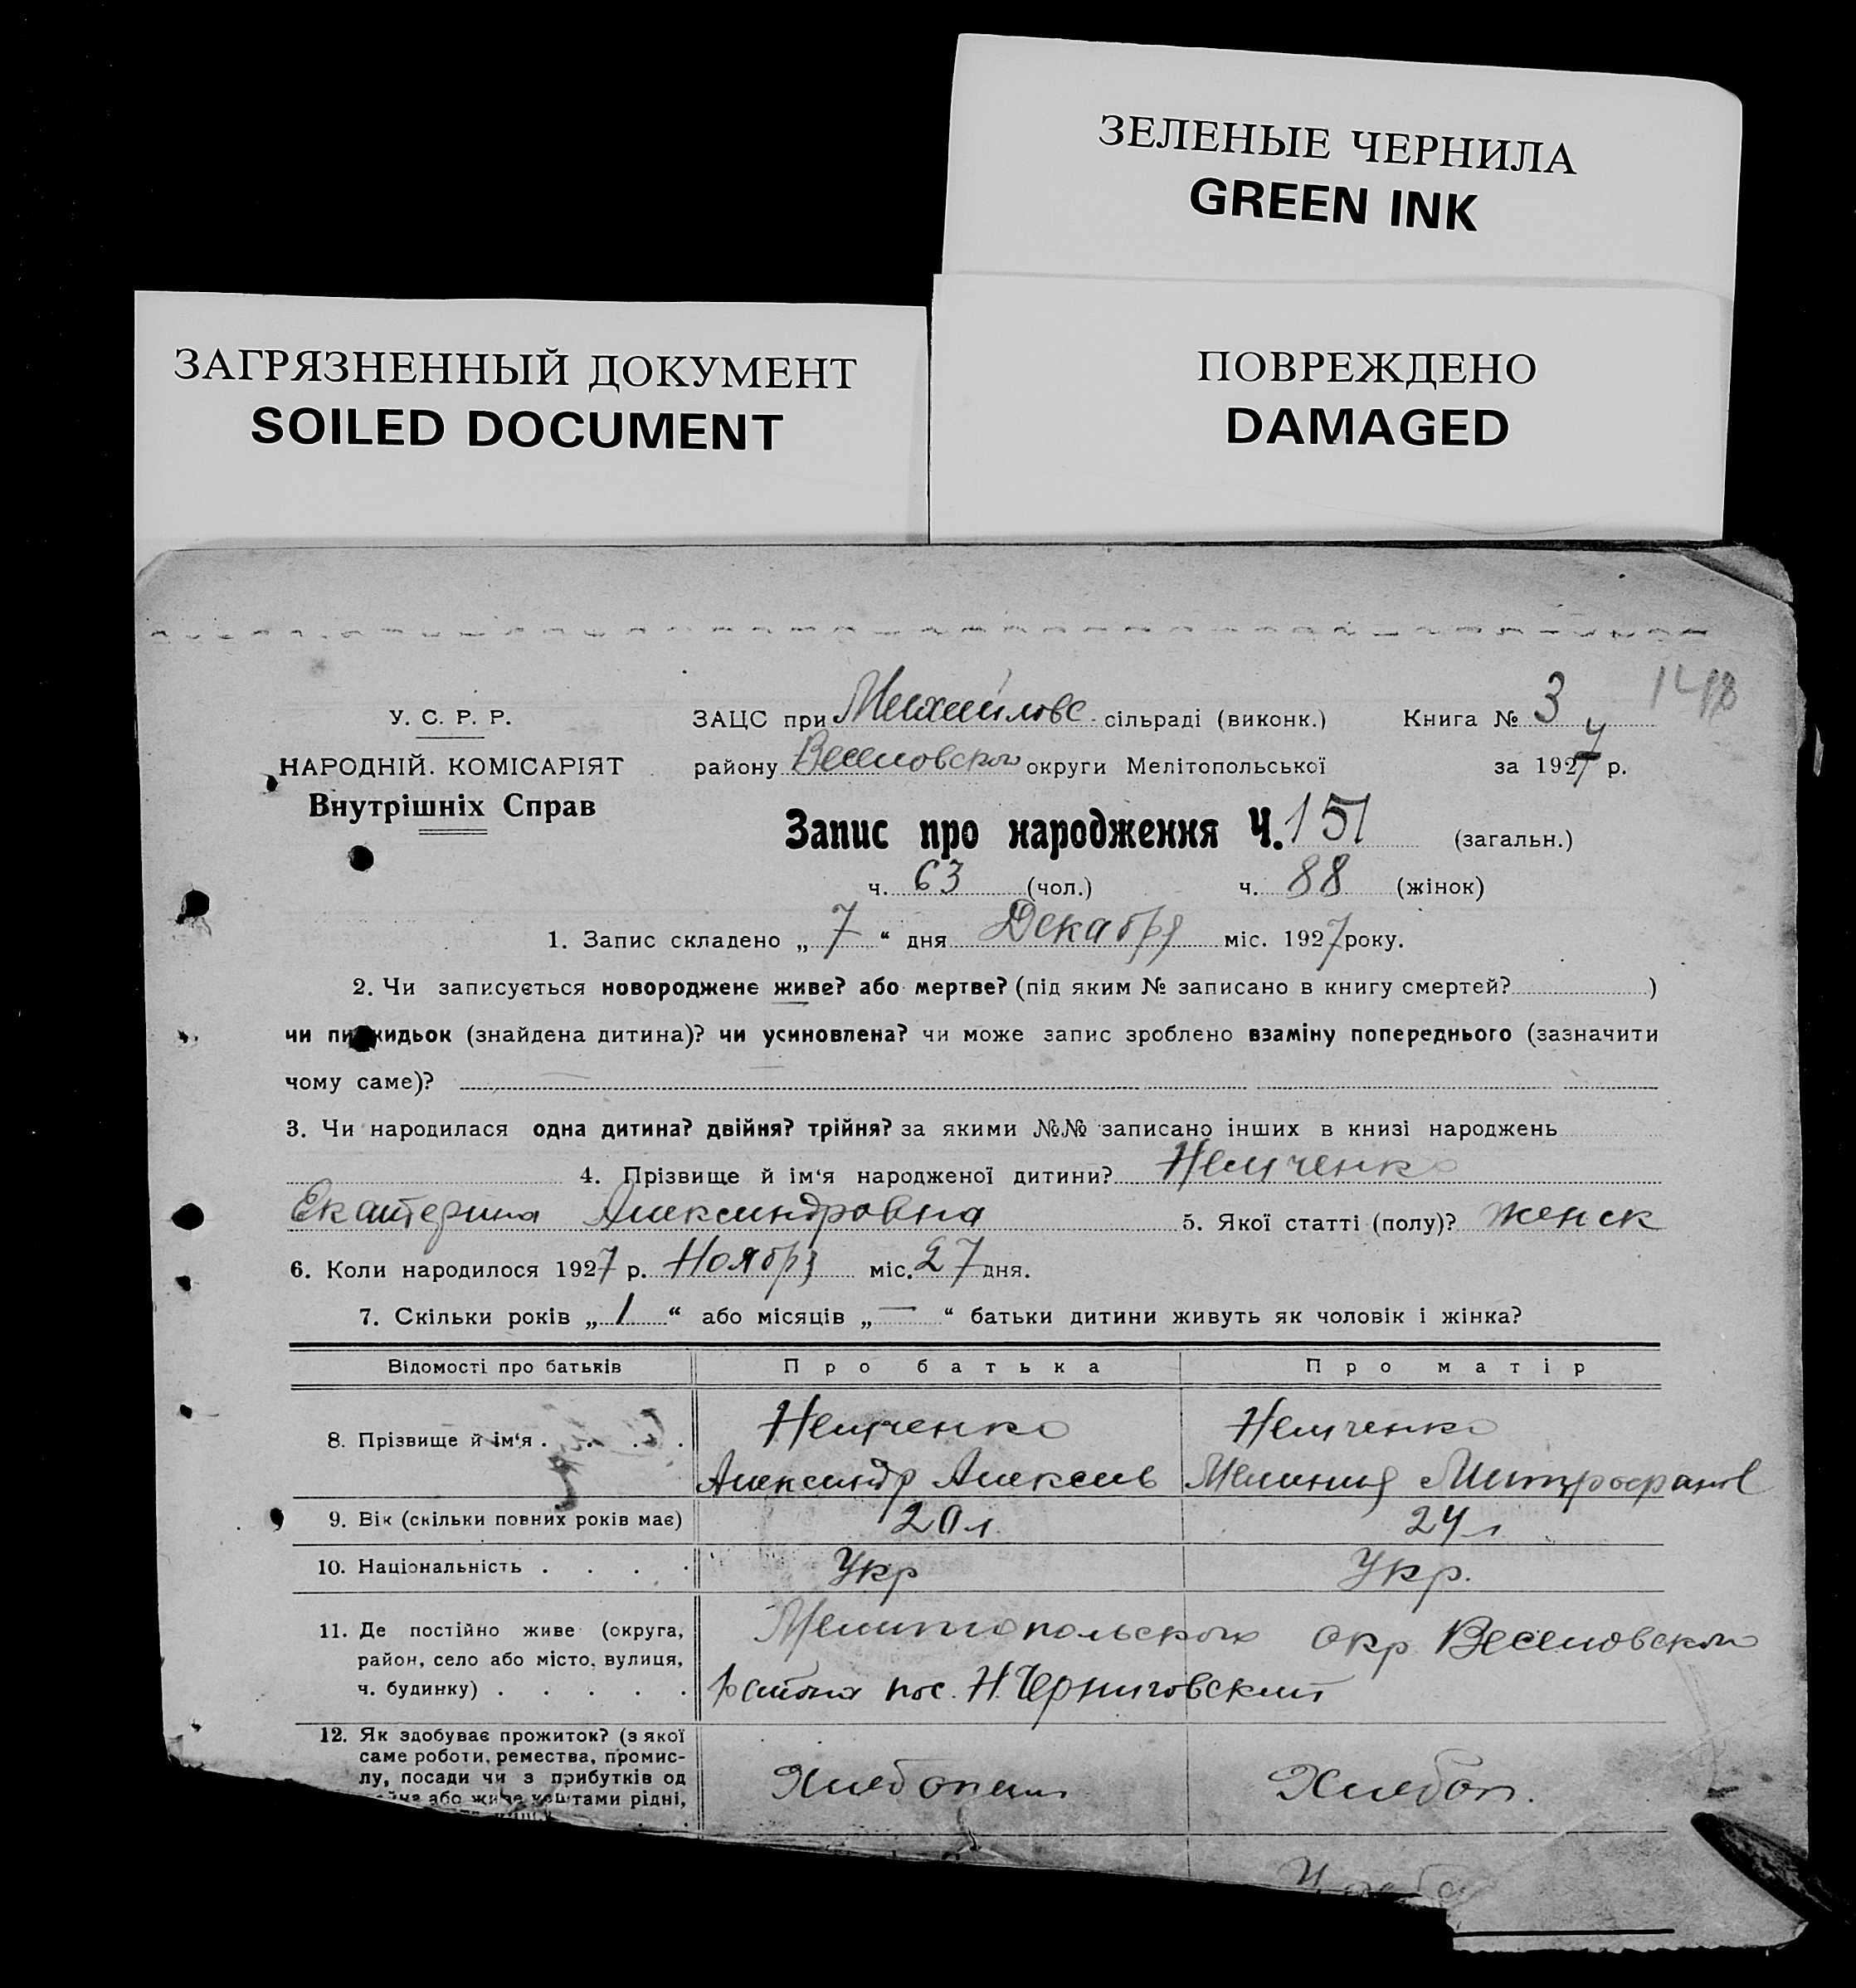 ЗЕЛЕНЫЕ ЧЕРНИЛА
GREEN INK
ЗАГРЯЗНЕННЫЙ ДОКУМЕНТ
SOILED DOCUMENT
ПОВРЕЖДЕНО
DAMAGED
148
У. С. Р. Р.
НАРОДНІЙ. КОМІСАРІЯТ
Внутрішніх Справ
ЗАЦС при Михайловс сільраді (виконк.) Книга № 3
району Веселовского округи Мелітопольської за 1927 р.
Запис про народження Ч. 151 (загальн.)
ч. 63 (чол.) ч. 88 (жінок)
1. Запис складено „ 7 “ дня Декабря міс. 1927 року.
2. Чи записується новороджене живе? або мертве? (під яким № записано в книгу смертей? )
чи підкидьок (знайдена дитина)? чи усиновлена? чи може запис зроблено взаміну попереднього (зазначити
чому саме)?
3. Чи народилася одна дитина? двійня? трійня? за якими №№ записано інших в книзі народжень
4. Прізвище й ім‘я народженої дитини? Немченко
Екатерина Александровна 5. Якої статті (полу)? женск
6. Коли народилося 1927 р. Ноября міс. 27 дня.
7. Скільки років „ 1 “ або місяців „ — “ батьки дитини живуть як чоловік і жінка?
Відомості про батьків Про батька Про матір
8. Прізвище й ім‘я . . . . Немченко Немченко
Александр Алексеев Мелания Митрофанов
9. Вік (скільки повних років має) 20 л. 24 л
10. Національність . . . . Укр Укр.
11. Де постійно живе (округа, район, село або місто, вулиця, ч. будинку) . . . . .
Мелитопольского окр Веселовского
района пос. Н. Черниговский
12. Як здобуває прожиток? (з якої
саме роботи, ремества, промис-
лу, посади чи з прибутків од
або живе коштами рідні,
Хлебопаш Хлебоп.